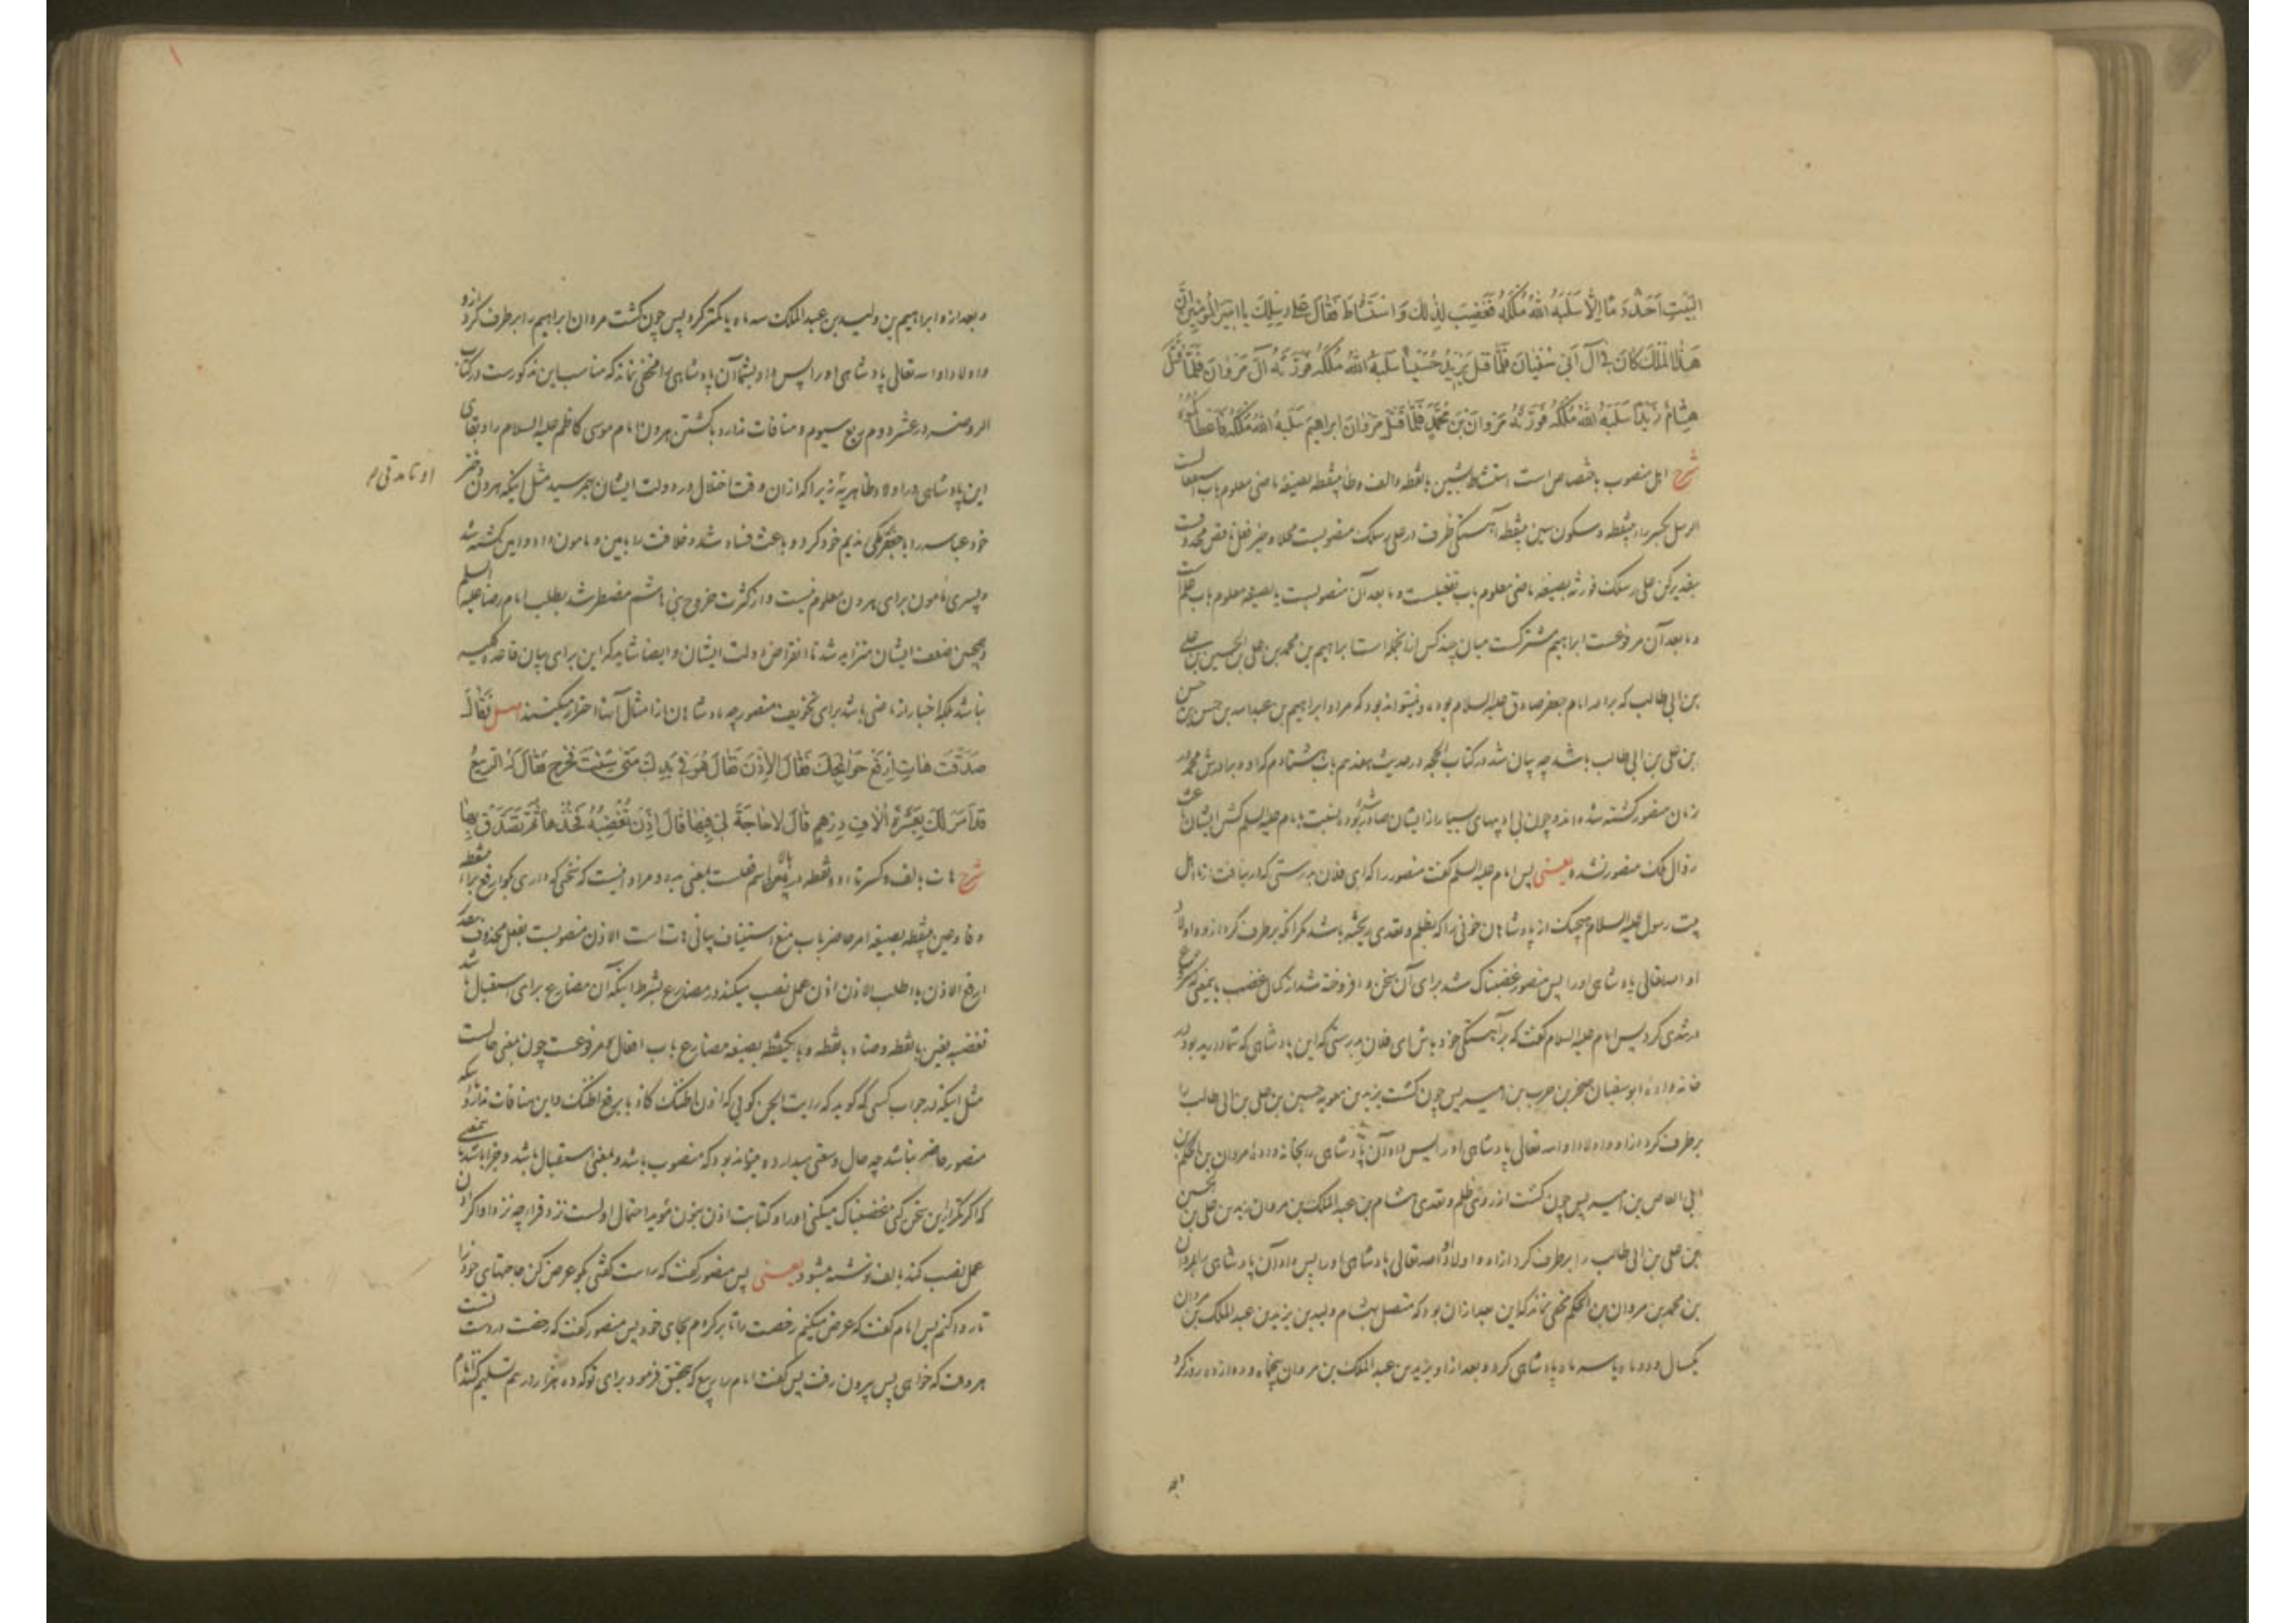 البَيتِ اَحَدٌ دَمًا اِلّا سَلَبَهُ اللهُ مُلكَهُ فَغَضِبَ لِذٰلِكَ وَاستَشَاطَ فَقَالَ عَلى رِسلِكَ يا اَميرَ المُؤمِنينَ اِنَّ
هَذَا المُلكَ كَانَ فِي آلِ اَبي سُفيَانَ فَلَمَّا قَتَلَ يَزِيدُ حُسَيناً سَلَبَهُ اللهُ مُلكَهُ فَوَرَّثَهُ آلَ مَروَانَ فَلَمَّا قَتَلَ
هِشَامٌ زَيداً سَلَبَهُ اللهُ مُلكَهُ فَوَرَّثَهُ مَروَانَ بنَ مُحَمَّدٍ فَلَمَّا قَتَلَ مَروَانُ ابراهيمَ سَلَبَهُ اللهُ مُلكَهُ فَاَعطَاكُمُوهُ
شرح اهل منصوب باختصاص است استشاط بشین بانقطه والف وطاء بینقطه بصیغه ماضی معلوم باب استفعالست
الرسل بکسر راء بینقطه وسکون سین بینقطه آهستگی ظرف در علی رسلک منصوبست محلا و خبر فعل ناقص محذوفست
بتقدیر کن علی رسلک فورثه بصیغه ماضی معلوم باب تفعیلست و ما بعد آن منصوبست یا بصیغه معلوم باب علمست
و ما بعد آن مرفوعست ابراهیم مشترکست میان چند کس از آنجمله است ابراهیم بن محمد بن علی بن الحسین بن علی
بن ابی طالب که برادر امام جعفر صادق علیه السلام بوده و میتواند بود که مراد ابراهیم بن عبدالله بن حسن بن حسن
بن علی بن ابی طالب باشد چه بیان شد در کتاب الحجه در حدیث هفدهم باب هشتادم که او و برادرش محمد در
زمان منصور کشته شده اند و چون بی ادبیهای بسیار از ایشان صادر شده بود نسبت بامام علیه السلم کشتن ایشان باعث
زوال ملک منصور نشده یعنی پس امام علیه السلم گفت منصور را که ای فلان بدرستی که در نیافت از ما اهل
بیت رسول علیه السلام هیچیک از پادشاهان خونی را که بظلم و تعدی ریخته باشد مگر آنکه برطرف کرد از او و اولاد
او الله تعالی پادشاهی او را پس منصور غضبناک شد برای آن سخن و افروخته شد از کمال غضب بمعنی که شروع
در تندی کرد پس امام علیه السلام گفت که بر آهستگی خود باش ای فلان بدرستی که این پادشاهی که تو داری بود در
خانواده ابوسفیان صخر بن حرب بن امیه پس چون کشت یزید بن معویه حسین بن علی بن ابی طالب را
برطرف کرد از او و اولاد او الله تعالی پادشاهی او را پس داد آن پادشاهی را بخانواده مروان بن الحکم بن
ابی العاص بن امیه پس چون کشت از روی ظلم و تعدی هشام بن عبدالملک بن مروان زید بن علی بن الحسین
بن علی بن ابی طالب را برطرف کرد از او و اولاد او الله تعالی پادشاهی او را پس داد آن پادشاهی را بمروان
بن محمد بن مروان بن الحکم مخفی نماند که این بعد از آن بود که متصل بهشام ولید بن یزید بن عبدالملک بن مروان
یکسال و دو ماه یا سه ماه پادشاهی کرد و بعد از او یزید بن عبدالملک بن مروان پنجماه و دوازده روز کرد
و بعد از او ابراهیم بن ولید بن عبدالملک سه ماه یا کمتر کرد پس چون کشت مروان ابراهیم را برطرف کرد از او
و اولاد او الله تعالی پادشاهی او را پس داد بشما آن پادشاهی را مخفی نماند که مناسب این مذکورست در کتاب
الروضه در عشر دوم ربع سیوم و منافات ندارد با کشتن هرون امام موسی کاظم علیه السلام را و بقای
این پادشاهی در اولاد ظاهریه زیرا که از آن وقت اختلال در دولت ایشان بهم رسید مثل اینکه هرون دختر
خود عباسه را با جعفر برمکی ندیم خود کرد و باعث فساد شد و خلافت را بامین و مامون داد و امین کشته شد
و پسری مامون برای هرون معلوم نیست و از کثرت خروج بنی هاشم مضطر شد بطلب امام رضا علیه السلم
و همچنین ضعف ایشان متزاید شد تا انقراض دولت ایشان و ایضا شاید که این برای بیان قاعده کلیه
نباشد بلکه اخبار از ماضی باشد برای تخویف منصور چه پادشاهان از امثال آنها احتراز میکنند اصل فَقَالَ
صَدَقتَ هَاتِ اِرفَع حَوَائِجَكَ فَقَالَ الاِذنَ فَقَالَ هُوَ فِي يَدِكَ مَتى شِئتَ فَخَرَجَ فَقَالَ لَهُ الرَّبِيعُ
قَد اَمَرَ لَكَ بِعَشَرَةِ آلَافِ دِرهَمٍ قَالَ لَا حَاجَةَ لِي فِيهَا قَالَ اِذَن تُغضِبُهُ فَخُذهَا ثُمَّ تَصَدَّق بِهَا
شرح هات بالف و کسر تاء دو نقطه در بالا اسم فعلست بمعنی بده و مراد اینست که سخنی که داری بگو ارفع براء بینقطه
و فاء و عین بینقطه بصیغه امر حاضر باب منع استیناف بیانی هات است الاذن منصوبست بفعل محذوف بتقدیر
ارفع الاذن یا اطلب الاذن اذن عمل نصب میکند در مضارع بشرط اینکه آن مضارع برای استقبال باشد
تغضبه بغین بانقطه و ضاد بانقطه و باء یکنقطه بصیغه مضارع باب افعال مرفوعست چون بمعنی حالست
مثل اینکه در جواب کسی که گوید که رایت الجن گویی که اذن اظنک کاذبا برفع اظنک و این منافات ندارد با اینکه
منصور حاضر نباشد چه حال وسعتی میدارد و میتواند بود که منصوب باشد و بمعنی استقبال باشد و جزا باشد بمعنی
که اگر تکرار این سخن کنی غضبناک میکنی او را و کتابت اذن بنون مؤید احتمال اولست نزد فراء چه نزد او اگر اذن
عمل نصب کند بالف نوشته میشود یعنی پس منصور گفت که راست گفتی بگو عرض کن حاجتهای خود را
تا روا کنم پس امام گفت که عرض میکنم رخصت را تا برگردم بجای خود پس منصور گفت که رخصت در دست تست
هر وقت که خواهی پس بیرون رفت پس گفت امام را ربیع که بتحقیق فرمود برای تو که ده هزار درهم تسلیم کنند امام